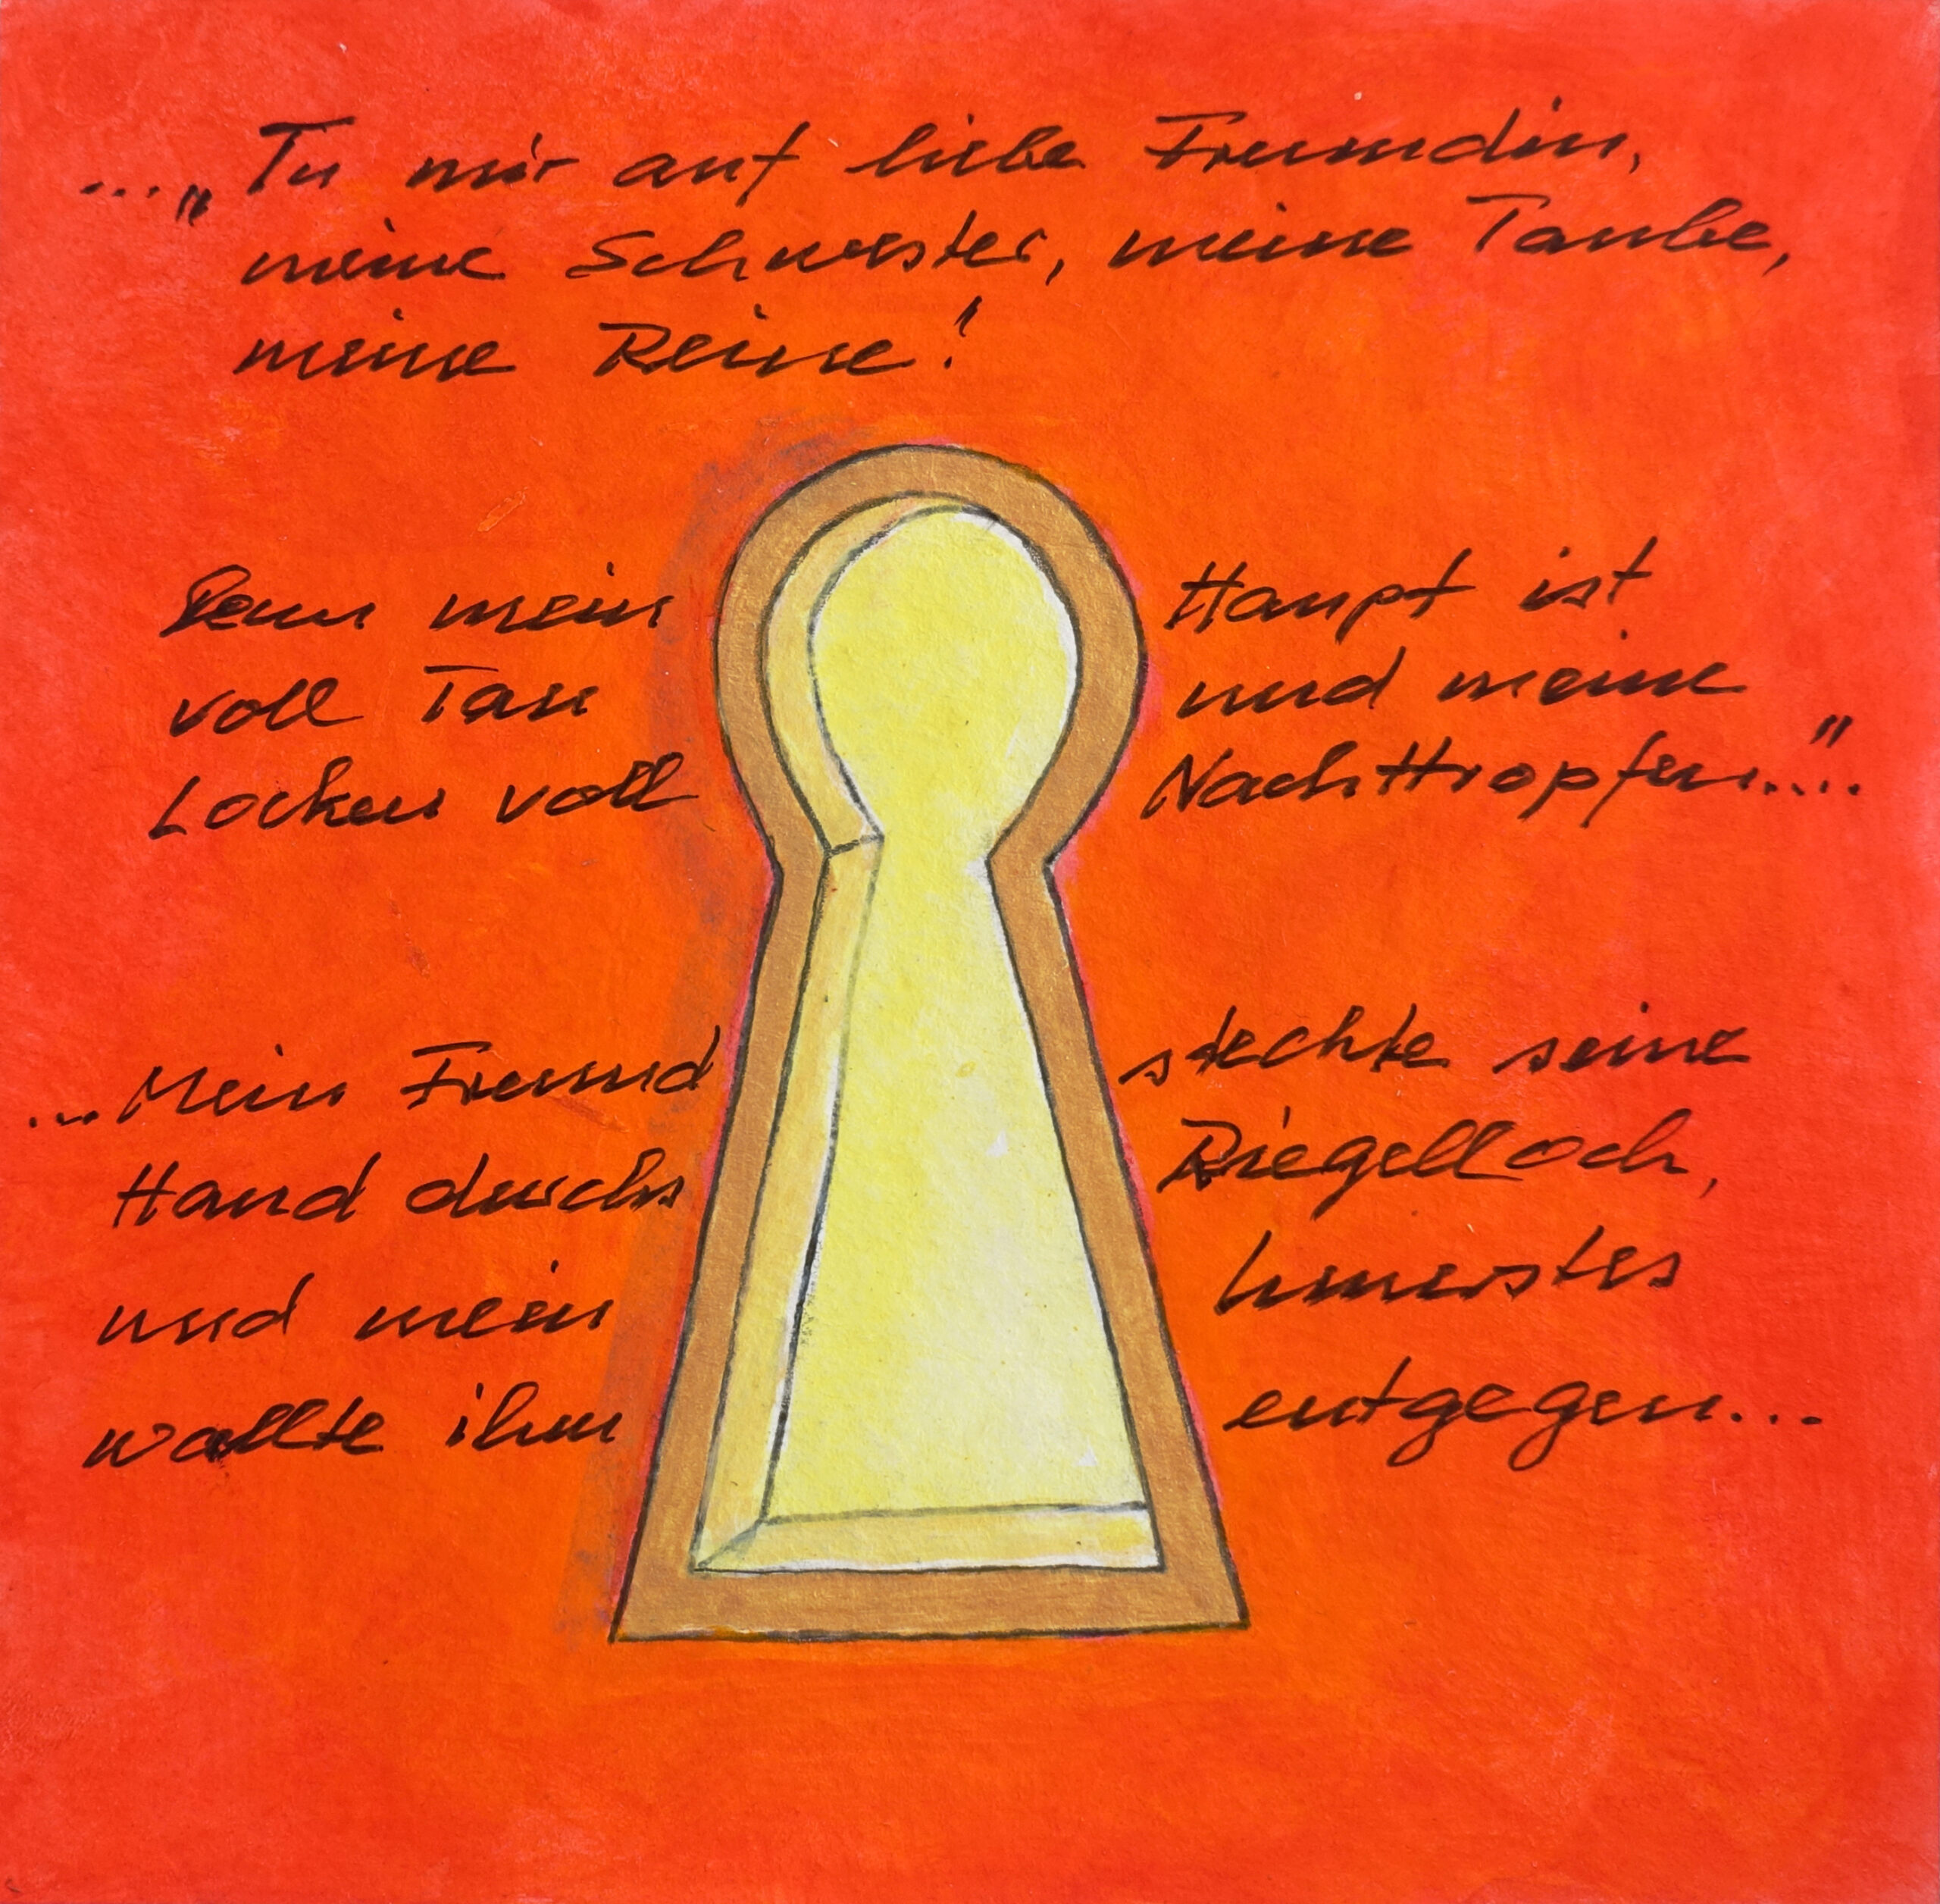 ..."Tu mir auf liebe Freundin,
meine Schwester, meine Taube,
meine Reine!
Denn mein Haupt ist
voll Tau und meine
Locken voll Nachttropfen...."
...Mein Freund steckte seine
Hand durchs Riegelloch,
und mein Innerstes
wallte ihm entgegen...